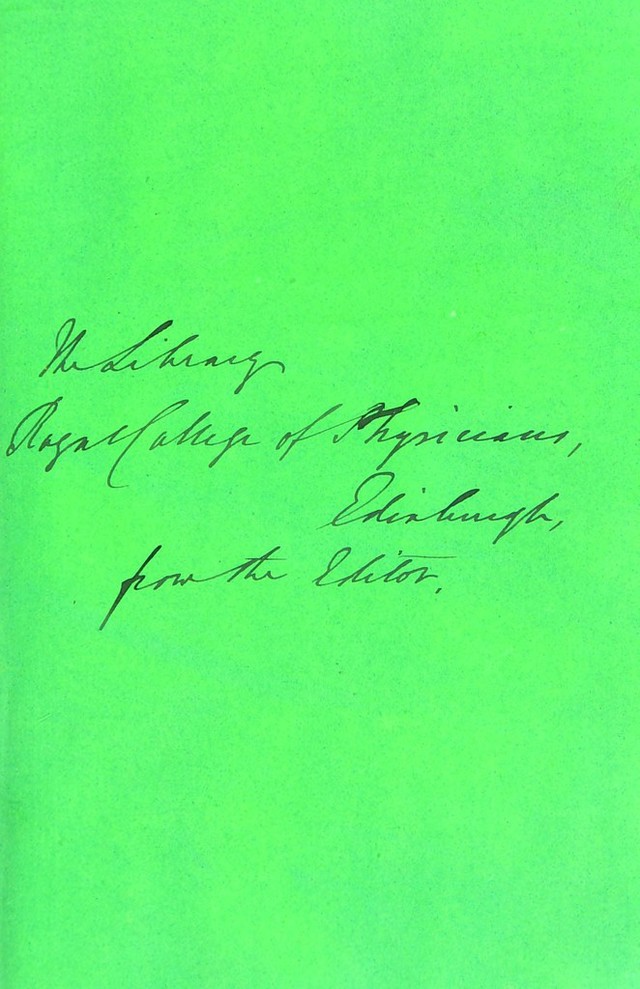 The Library
Royal College of Physicians,
Edinburgh,
from the Editor.